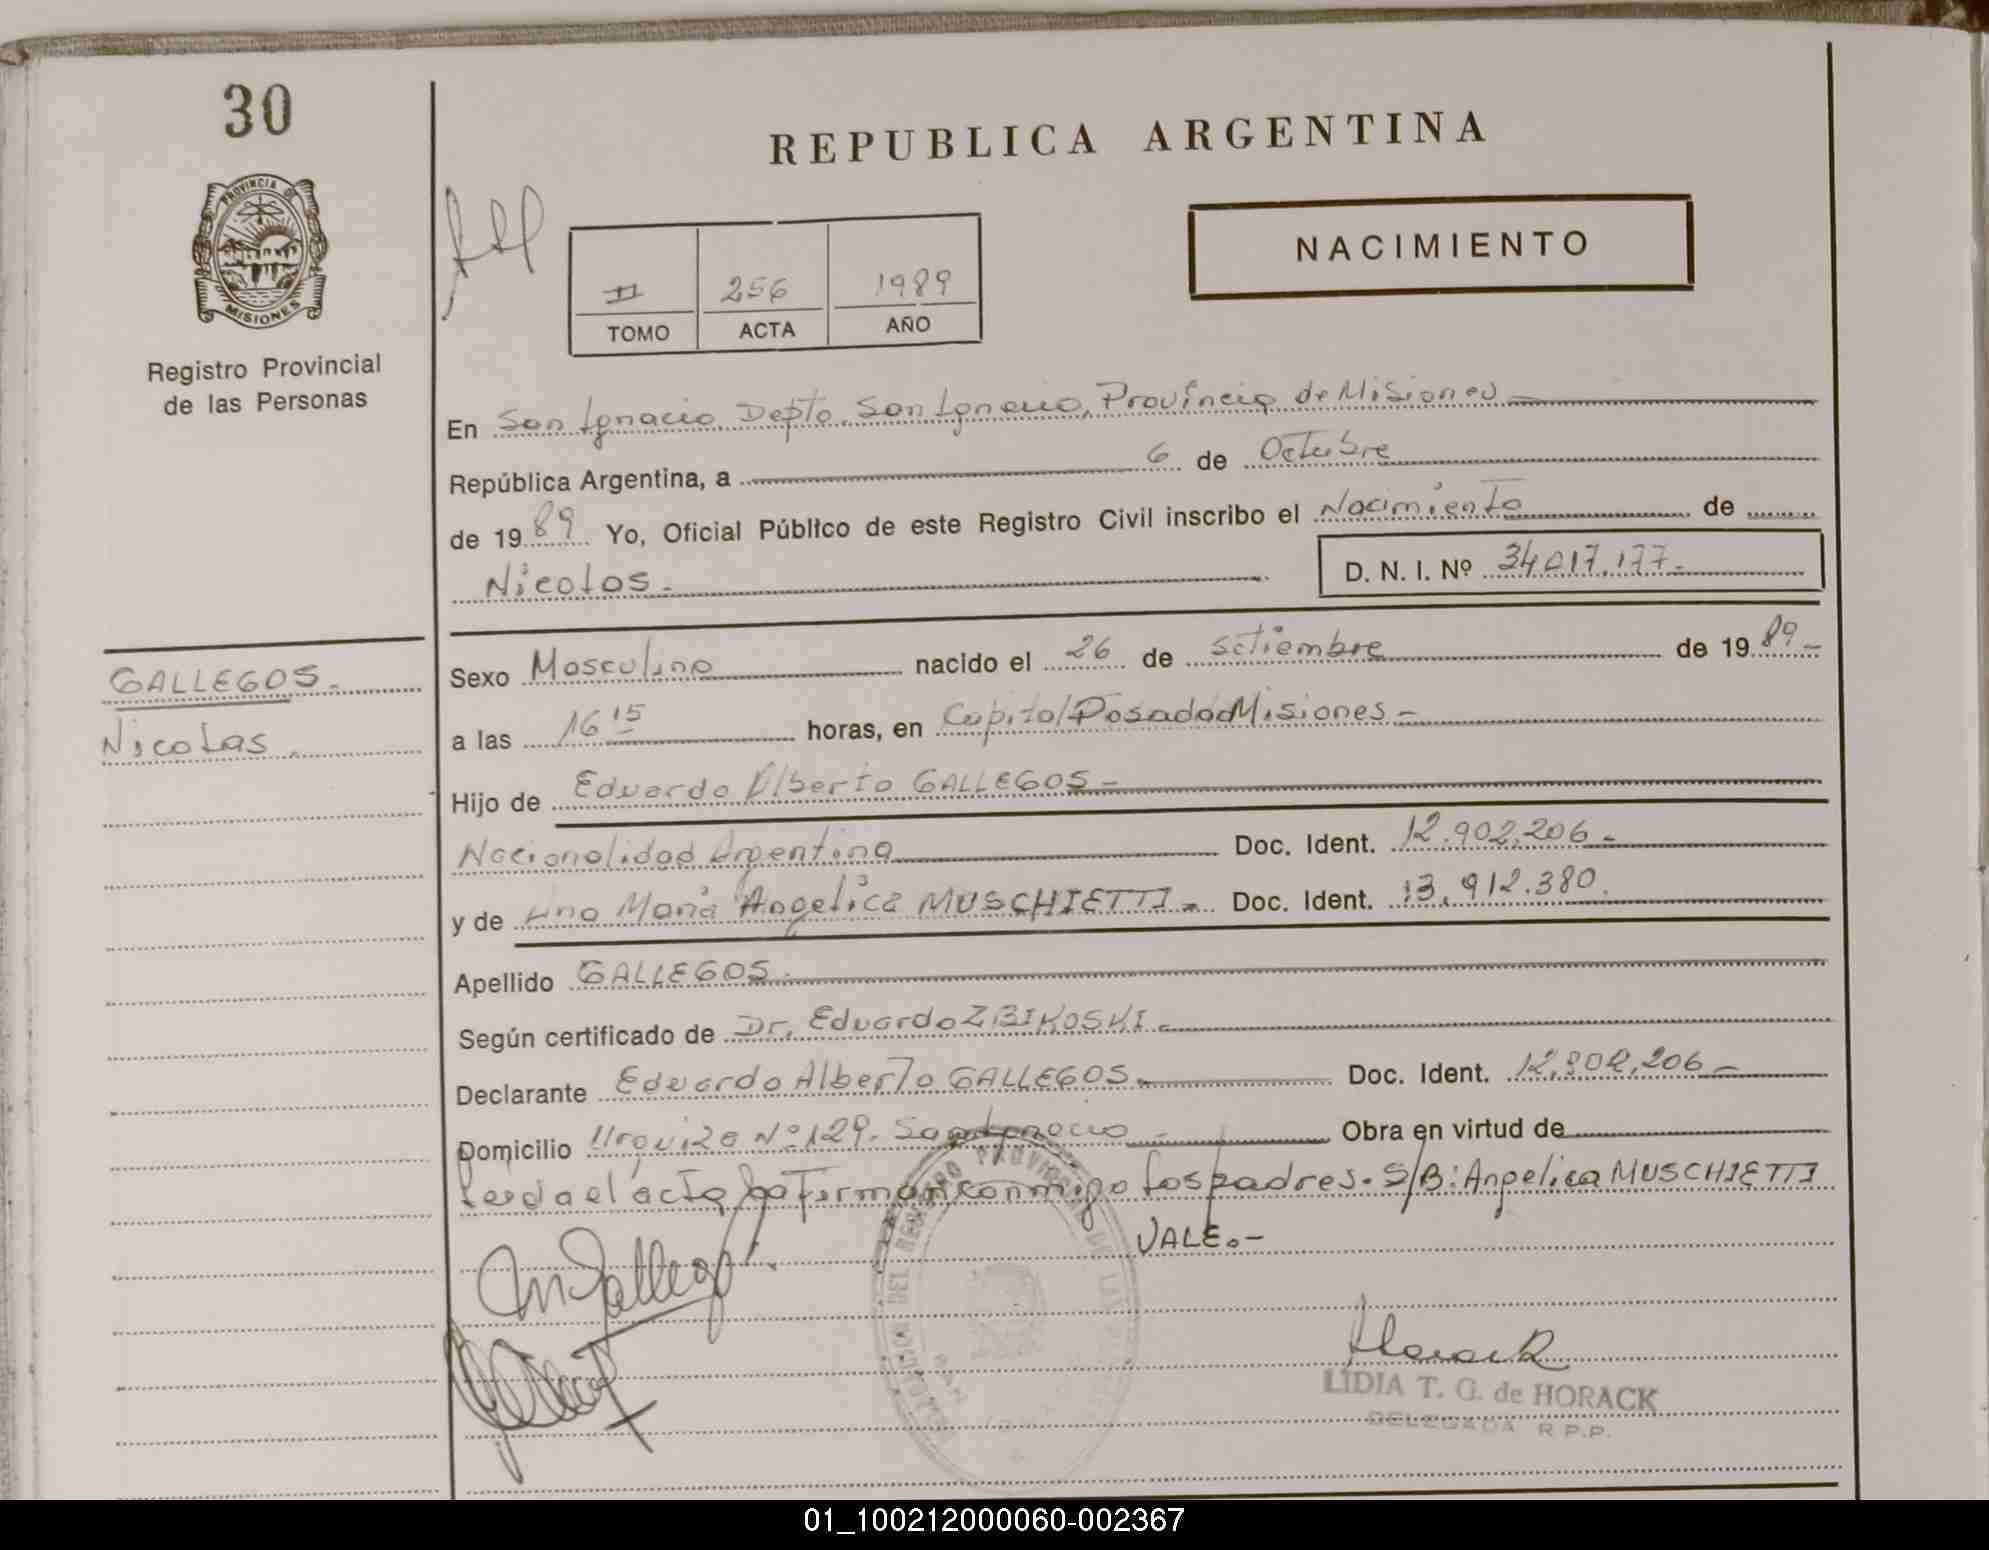 30
REPUBLICA ARGENTINA
PROVINCIA DE
MISIONES
NACIMIENTO
II 256 1989
TOMO ACTA AÑO
Registro Provincial
de las Personas
En San Ignacio, Depto. San Ignacio, Provincia de Misiones
República Argentina, a 6 de Octubre
de 1989 Yo, Oficial Público de este Registro Civil inscribo el Nacimiento de
Nicolas.- D. N. I. Nº 34.017.177.-
GALLEGOS.
Nicolas.
Sexo Masculino nacido el 26 de Setiembre de 1989.-
a las 16 15 horas, en Capital Posadas Misiones.-
Hijo de Eduardo Alberto GALLEGOS.-
Nacionalidad Argentina Doc. Ident. 12.902.206.-
y de Ana Maria Angelica MUSCHIETTI.- Doc. Ident. 13.912.380.
Apellido GALLEGOS.-
Según certificado de Dr. Eduardo ZBIKOSKI.-
Declarante Eduardo Alberto GALLEGOS.- Doc. Ident. 12.902.206.-
Domicilio Urquiza Nº 129. San Ignacio.- Obra en virtud de
Leida el acta la firman conmigo los padres. S/B: Angelica MUSCHIETTI
VALE.-
Horack
LIDIA T. G. de HORACK
DELEGADA R.P.P.
01_100212000060-002367